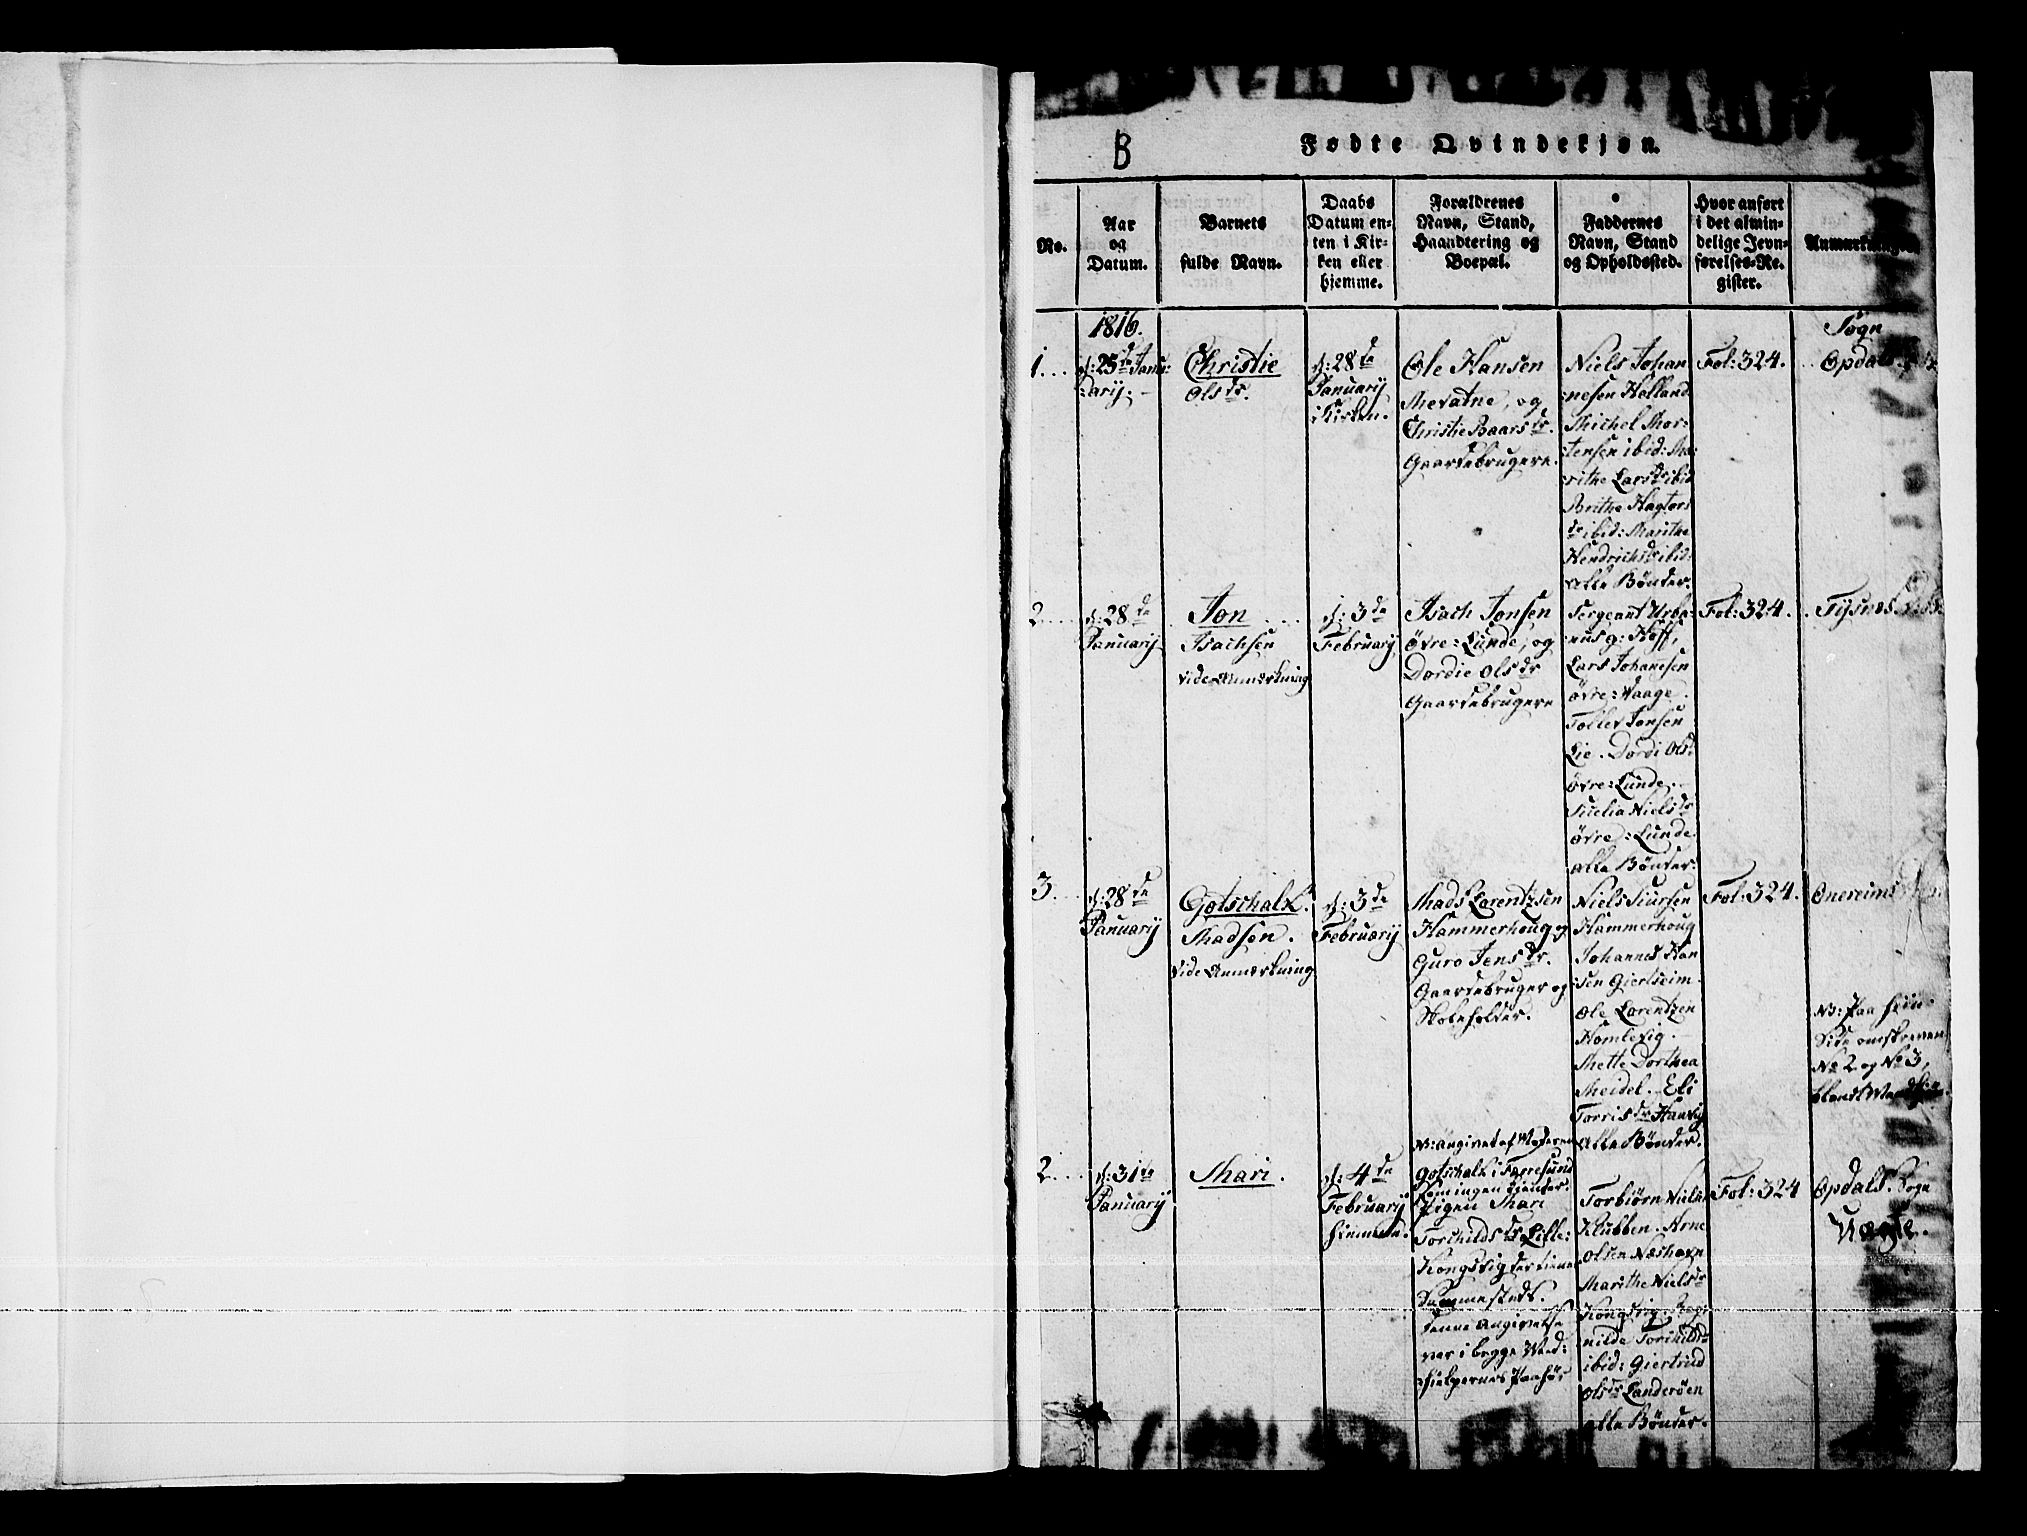 B
Fødte Qvindekjøn.
No.
Aar
og
Datum.
Barnets
fulde Navn.
Daabs
Datum en-
ten i Kir-
ken eller
hjemme.
Forældrenes
Navn, Stand,
Haandtering og
Boepæl.
Faddernes
Navn, Stand
og Opholdssted.
Hvor anført
i det almin-
delige Jevn-
førelses-Re-
gister.
Anmærkninger
1816.
1...
d: 25de Janu:
:arij.
Christie
Olsdr.
d: 28de
Januarij
i Kirken.
Ole Hansen
Mevatne, og
Christie Baarsdr.
Gaardebrugere.
Niels Johan
nesen Helland
Michel Mor:
tensen ibid: Ma:
rithe Larsdr ibid
Brithe Hagtors
dr ibid: Marithe
Hendrichsdr ibid:
Alle Bönder.
Fol: 324.
Sogn
Opdals
2....
d: 28de
Januarij
Jon
Isachsen
vide Anmærkning
d: 3de
Februarij
Isach Jonsen
övre: Lunde, og
Dordie Olsdr
Gaardebrugere
Sergeant Urba:
nus g: Hoff,
Lars Johanesen
övre: Waage.
Tollev Jonsen
Lie. Dordi Olsd
övre: Lunde.
Nielsdr
övre: Lunde.
Alle Bönder:
Fol: 324.
Tysnes
3....
d: 28de
Januarij
Gotschalk
Madsen.
Vide Anmærkning
d: 3de
Februarij
Mads Lorentzsen
Hammerhoug og
Guro Jensdr.
Gaardebruger og
Skoleholder.
Niels Siursen
Hammerhoug
Johannes Han
:sen Giertseim.
Ole Lorentzen
Homlevig.
Mette Dorthea
Meidel. Eli
Torrisdr Hanvig
Alle Bönder.
Fol: 324.
Onereims
NB: Paa
Side
No 2 og No 3,
blandt
2....
d: 31te
Januarij
Mari.
d: 4de
Februarij
hiemme.
NB: Angivet af Moderen
Gotschalk i
Pigen Mari
Torchildsdr Lille:
Kongsvig der tiene
Sammesteds.
denne Angivelse
var i begge Med:
hielpernes Paahör
Torbiörn Niels
Klubben. Arne
Olsen Næshavn
Marithe Nielsdr
Kongsvig.
nilde Torchildsdr
ibid: Giertrud
Olsdr Landeröen
Alle Bönder.
Fol: 324
Opdals Sogn
Uægte.